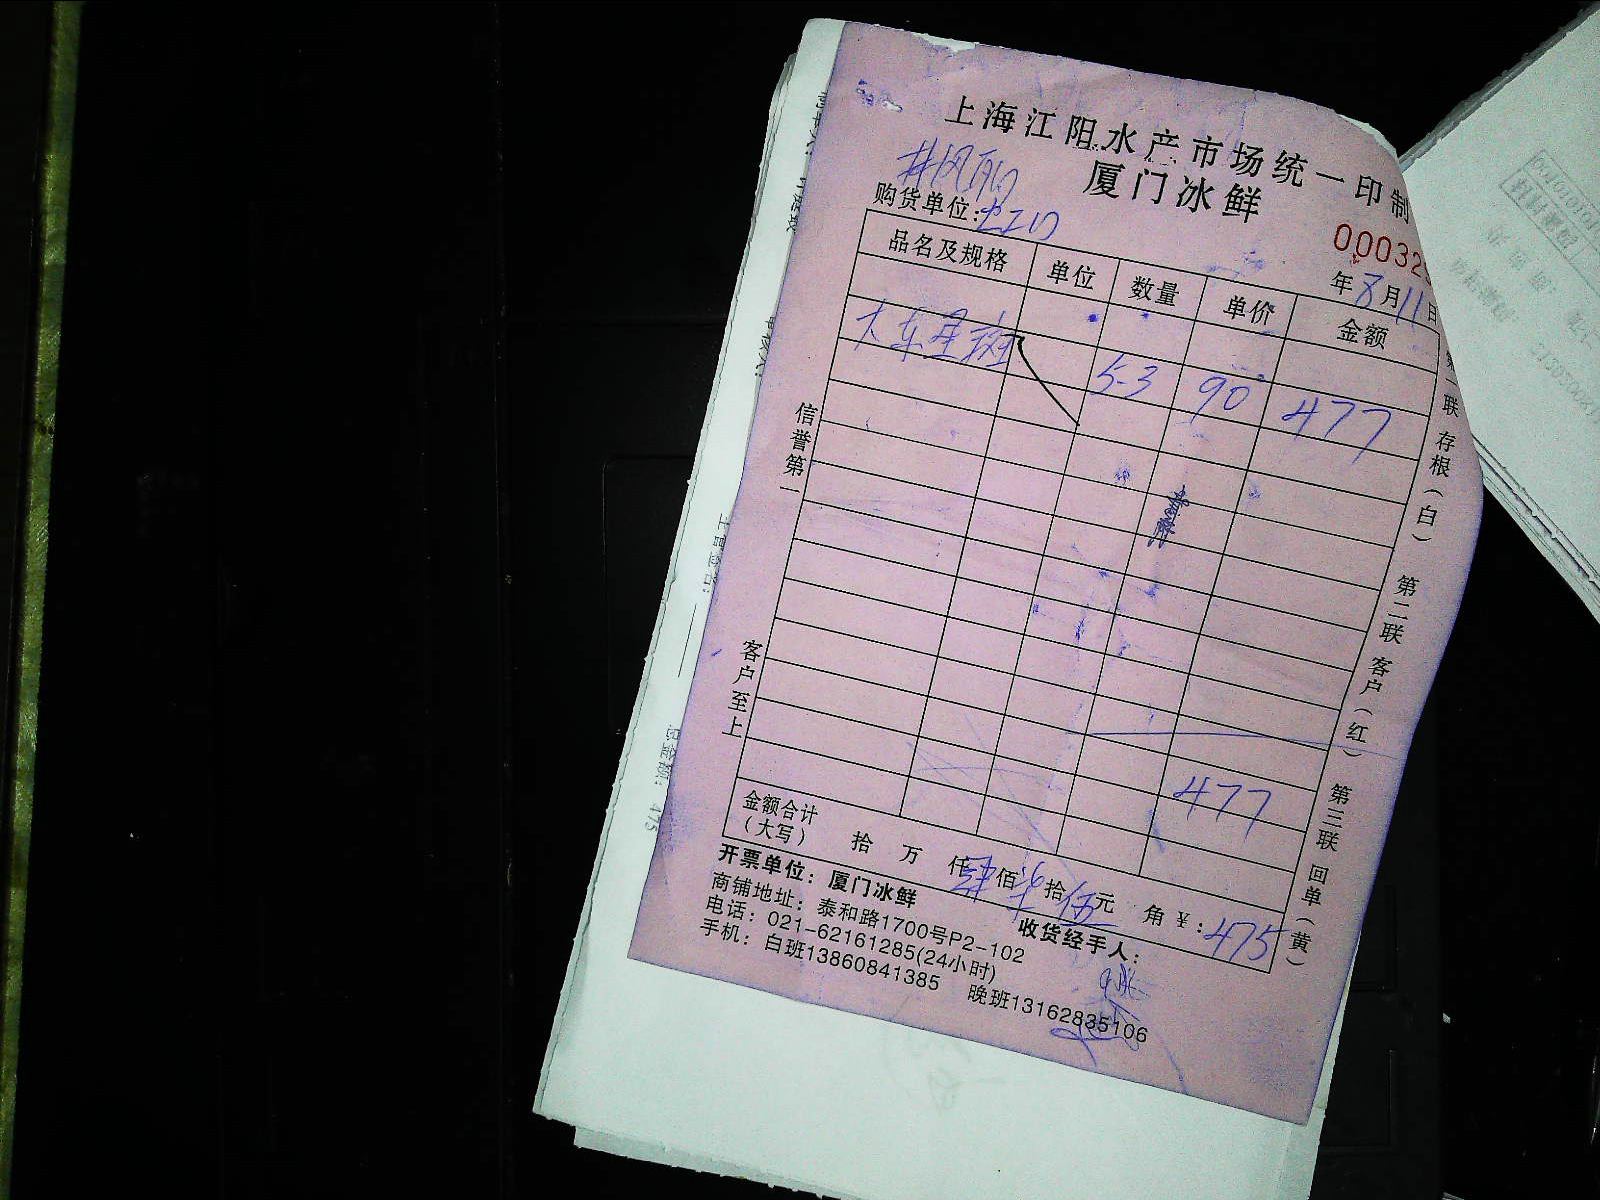 上海江阳水产市场统一印制
厦门冰鲜
购货单位:
00032
年8月11日
品名及规格 单位 数量 单价 金额
大东星斑 5-3 90 477
477
金额合计
(大写) 拾 万 仟肆佰柒拾伍元 角 ¥:475
开票单位:厦门冰鲜 收货经手人:
商铺地址:泰和路1700号P2-102
电话:021-62161285(24小时)
手机:白班13860841385 晚班13162835106
信誉第一
客户至上
第一联 存根(白) 第二联 客户(红) 第三联 回单(黄)
总金额: 475